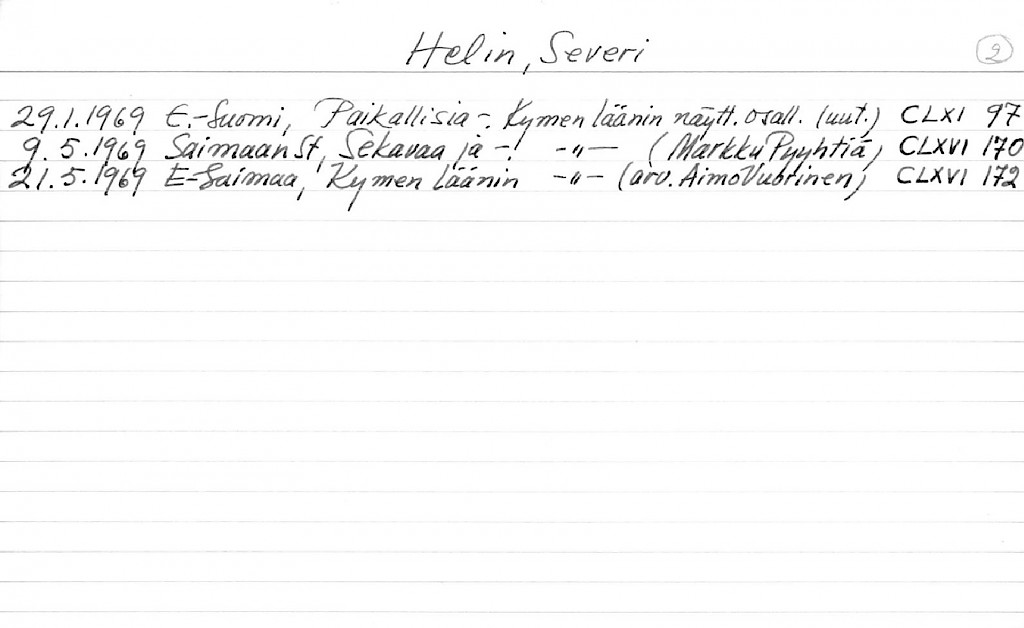 Helin, Severi 2
29.1.1969 E.-Suomi, Paikallisia -: Kymen läänin näytt. osall. (uut.) CLXI 97
9.5.1969 Saimaan St, Sekavaa ja -! -"- (Markku Pyyhtiä) CLXVI 170
21.5.1969 E-Saimaa, Kymen läänin -"- (arv. Aimo Vuorinen) CLXVI 172